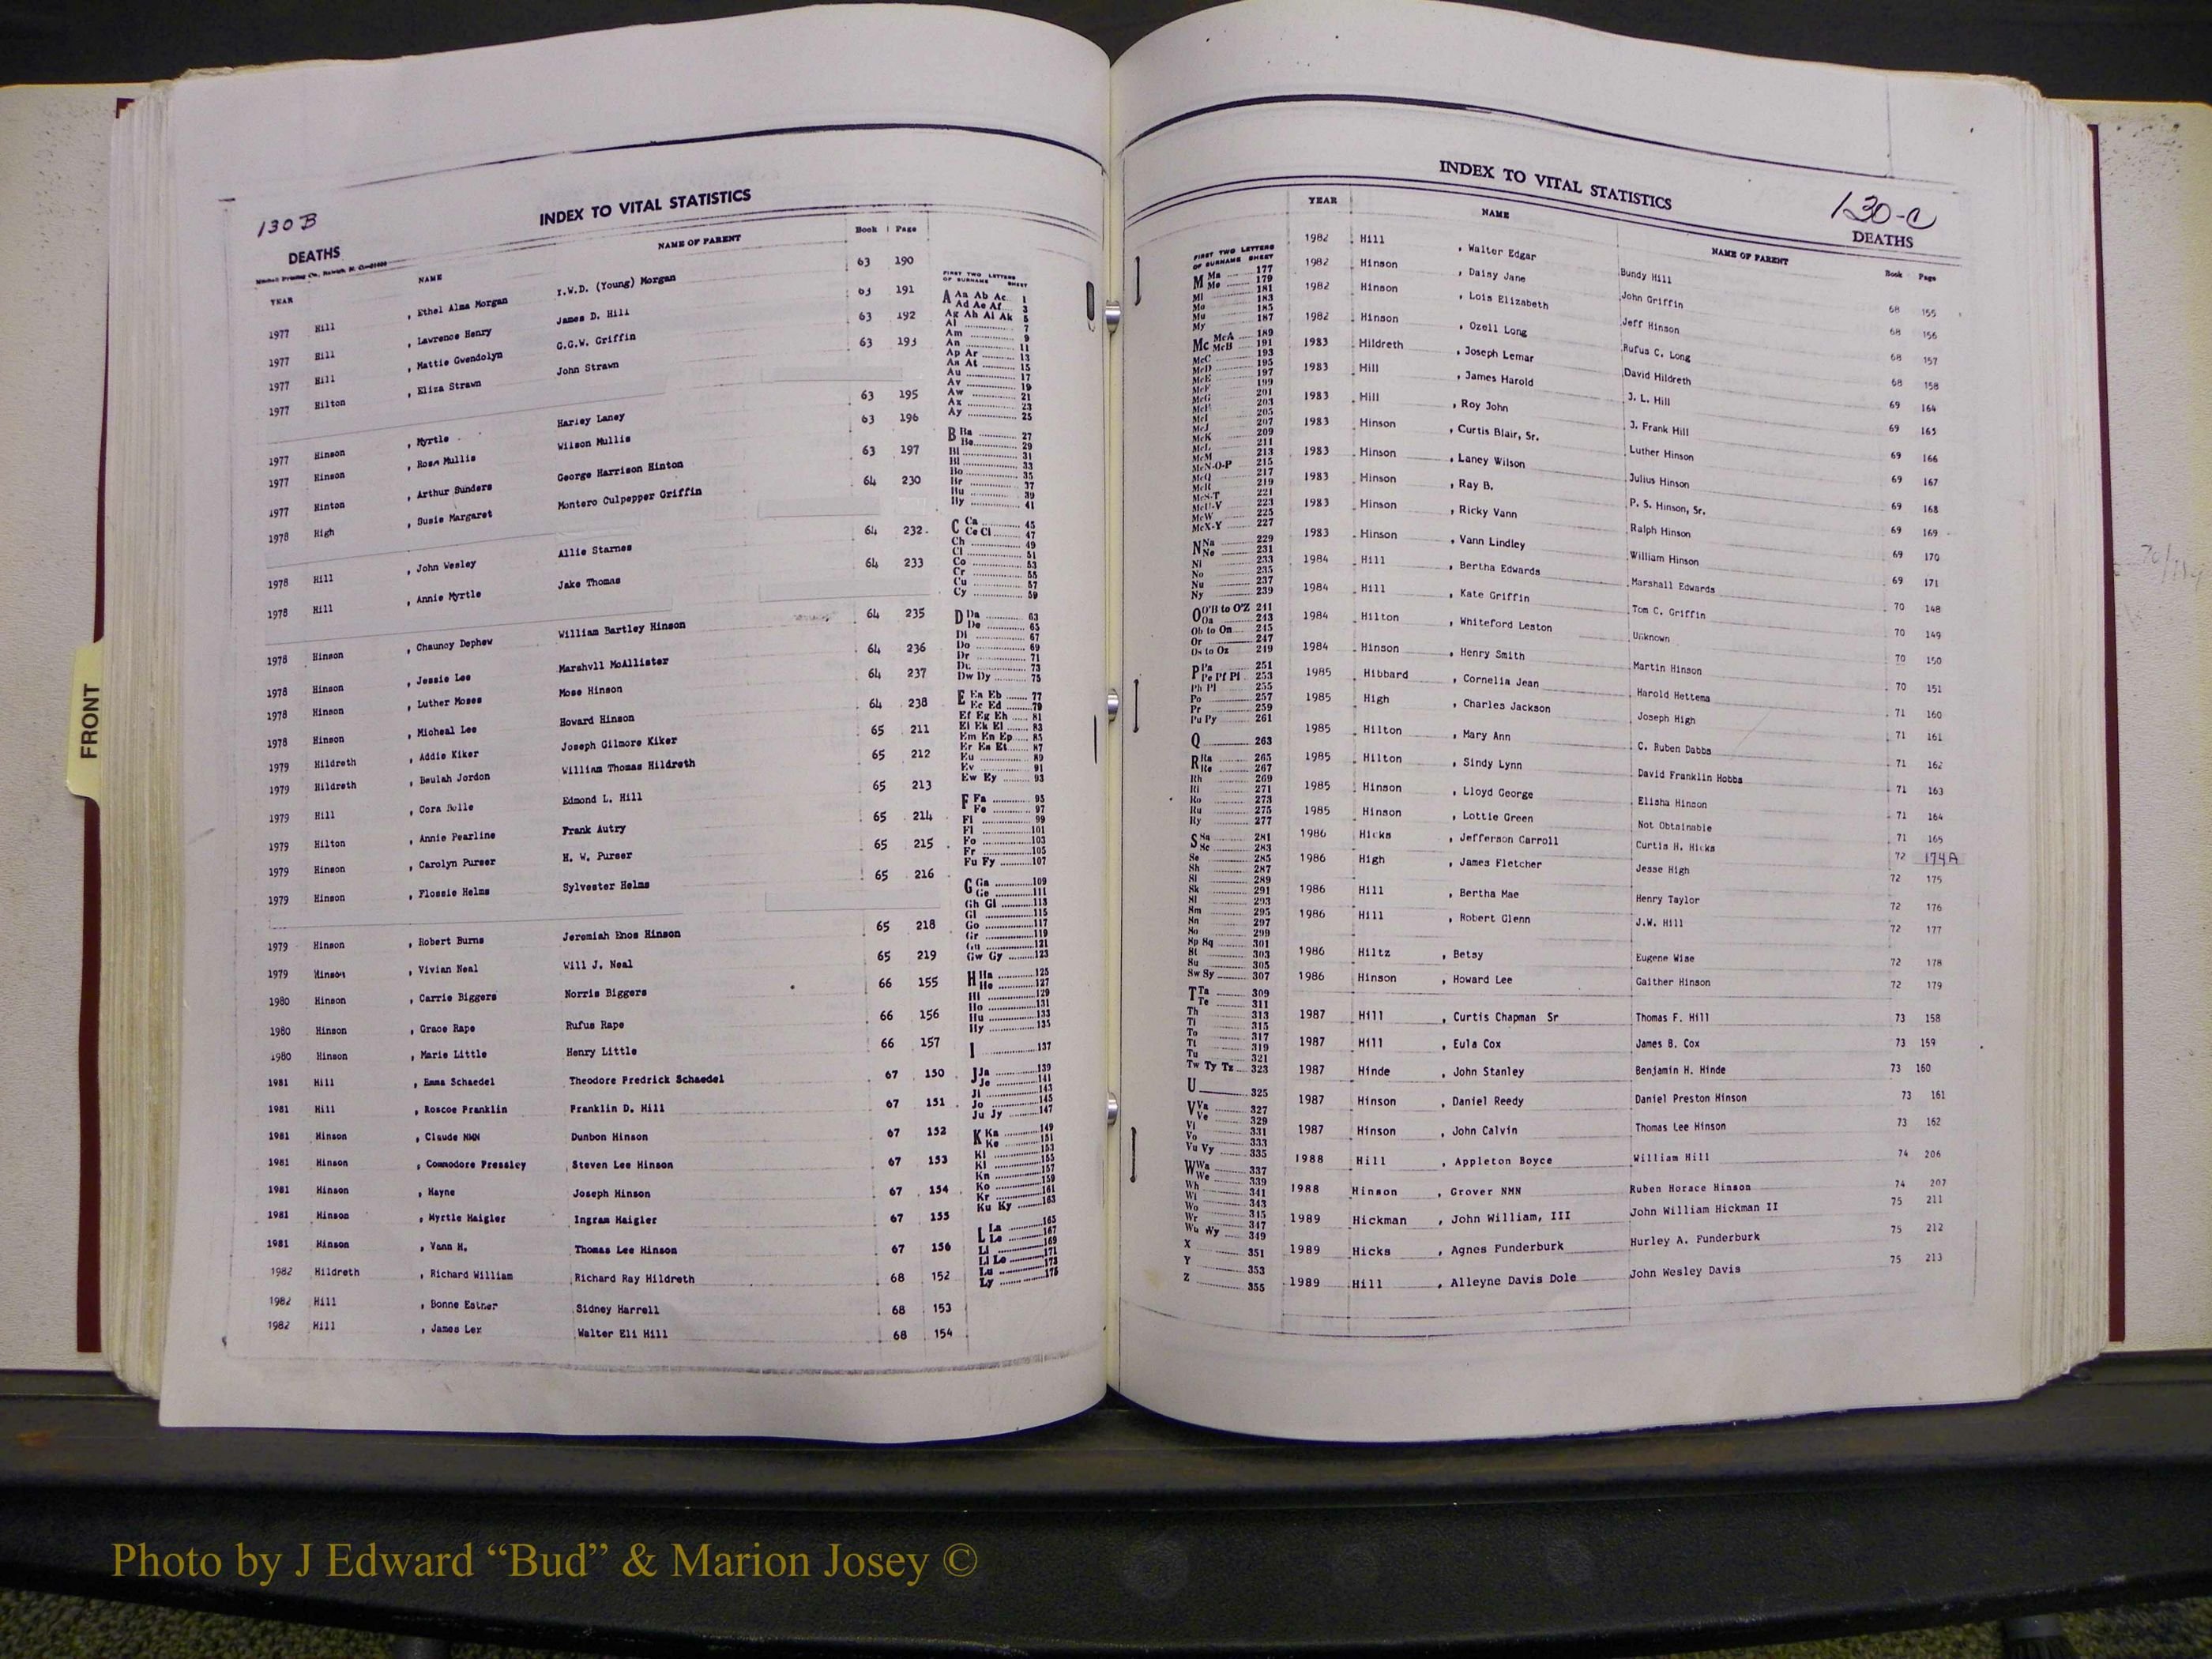 130 B
INDEX TO VITAL STATISTICS
DEATHS
YEAR NAME NAME OF PARENT Book Page
1977 Hill , Ethel Alma Morgan I.W.D. (Young) Morgan 63 190
1977 Hill , Lawrence Henry James D. Hill 63 191
1977 Hill , Mattie Gwendolyn G.G.W. Griffin 63 192
1977 Hilton , Eliza Strawn John Strawn 63 193
1977 Hinson , Myrtle Harley Laney 63 195
1977 Hinson , Rosa Mullis Wilson Mullis 63 196
1977 Hinton , Arthur Sunders George Harrison Hinton 63 197
1978 High , Susie Margaret Montero Culpepper Griffin 64 230
1978 Hill , John Wesley Allie Starnes 64 232
1978 Hill , Annie Myrtle Jake Thomas 64 233
1978 Hinson , Chauncy Dephew William Bartley Hinson 64 235
1978 Hinson , Jessie Lee Marshvll McAllister 64 236
1978 Hinson , Luther Moses Mose Hinson 64 237
1978 Hinson , Micheal Lee Howard Hinson 64 238
1979 Hildreth , Addie Kiker Joseph Gilmore Kiker 65 211
1979 Hildreth , Beulah Jordon William Thomas Hildreth 65 212
1979 Hill , Cora Belle Edmond L. Hill 65 213
1979 Hilton , Annie Pearline Frank Autry 65 214
1979 Hinson , Carolyn Purser H. W. Purser 65 215
1979 Hinson , Flossie Helms Sylvester Helms 65 216
1979 Hinson , Robert Burns Jeremiah Enos Hinson 65 218
1979 Hinson , Vivian Neal Will J. Neal 65 219
1980 Hinson , Carrie Biggers Norris Biggers 66 155
1980 Hinson , Grace Rape Rufus Rape 66 156
1980 Hinson , Marie Little Henry Little 66 157
1981 Hill , Emma Schaedel Theodore Fredrick Schaedel 67 150
1981 Hill , Roscoe Franklin Franklin D. Hill 67 151
1981 Hinson , Claude NMN Dunbon Hinson 67 152
1981 Hinson , Commodore Pressley Steven Lee Hinson 67 153
1981 Hinson , Hayne Joseph Hinson 67 154
1981 Hinson , Myrtle Haigler Ingram Haigler 67 155
1981 Hinson , Vann H. Thomas Lee Hinson 67 156
1982 Hildreth , Richard William Richard Ray Hildreth 68 152
1982 Hill , Bonne Esther Sidney Harrell 68 153
1982 Hill , James Lex Walter Eli Hill 68 154
FIRST TWO LETTERS
OF SURNAME SHEET
A Aa Ab Ac 1
Ad Ae Af 3
Ag Ah Ai Ak 5
Al 7
Am 9
An 11
Ap Ar 13
As At 15
Au 17
Av 19
Aw 21
Ax 23
Ay 25
B Ba 27
Be 29
Bi 31
Bl 33
Bo 35
Br 37
Bu 39
By 41
C Ca 45
Ce Ci 47
Ch 49
Cl 51
Co 53
Cr 55
Cu 57
Cy 59
D Da 63
De 65
Di 67
Do 69
Dr 71
Du 73
Dw Dy 75
E Ea Eb 77
Ec Ed 79
Ef Eg Eh 81
Ei Ek El 83
Em En Ep 85
Er Es Et 87
Eu 89
Ev 91
Ew Ey 93
F Fa 95
Fe 97
Fi 99
Fl 101
Fo 103
Fr 105
Fu Fy 107
G Ga 109
Ge 111
Gh Gi 113
Gl 115
Go 117
Gr 119
Gu 121
Gw Gy 123
H Ha 125
He 127
Hi 129
Ho 131
Hu 133
Hy 135
I 137
J Ja 139
Je 141
Ji 143
Jo 145
Ju Jy 147
K Ka 149
Ke 151
Ki 153
Kl 155
Kn 157
Ko 159
Kr 161
Ku Ky 163
L La 165
Le 167
Li 169
Ll Lo 171
Lu 173
Ly 175
INDEX TO VITAL STATISTICS
130-C
DEATHS
FIRST TWO LETTERS
OF SURNAME SHEET
M Ma 177
Me 179
Mi 181
Mo 183
Mu 185
My 187
Mc McA 189
McB 191
McC 193
McD 195
McE 197
McF 199
McG 201
McH 203
McI 205
McJ 207
McK 209
McL 211
McM 213
McN-O-P 215
McQ 217
McR 219
McS-T 221
McU-V 223
McW 225
McX-Y 227
N Na 229
Ne 231
Ni 233
No 235
Nu 237
Ny 239
O O'B to O'Z 241
Oa 243
Ob to On 245
Or 247
Os to Oz 249
P Pa 251
Pe Pf Pi 253
Ph Pl 255
Po 257
Pr 259
Pu Py 261
Q 263
R Ra 265
Re 267
Rh 269
Ri 271
Ro 273
Ru 275
Ry 277
S Sa 281
Sc 283
Se 285
Sh 287
Si 289
Sk 291
Sl 293
Sm 295
Sn 297
So 299
Sp Sq 301
St 303
Su 305
Sw Sy 307
T Ta 309
Te 311
Th 313
Ti 315
To 317
Tt 319
Tu 321
Tw Ty Tz 323
U 325
V Va 327
Ve 329
Vi 331
Vo 333
Vu Vy 335
W Wa 337
We 339
Wh 341
Wi 343
Wo 345
Wr 347
Wu Wy 349
X 351
Y 353
Z 355
YEAR NAME NAME OF PARENT Book Page
1982 Hill , Walter Edgar Bundy Hill 68 155
1982 Hinson , Daisy Jane John Griffin 68 156
1982 Hinson , Lois Elizabeth Jeff Hinson 68 157
1982 Hinson , Ozell Long Rufus C. Long 68 158
1983 Hildreth , Joseph Lemar David Hildreth 69 164
1983 Hill , James Harold J. L. Hill 69 165
1983 Hill , Roy John J. Frank Hill 69 166
1983 Hinson , Curtis Blair, Sr. Luther Hinson 69 167
1983 Hinson , Laney Wilson Julius Hinson 69 168
1983 Hinson , Ray B. P. S. Hinson, Sr. 69 169
1983 Hinson , Ricky Vann Ralph Hinson 69 170
1983 Hinson , Vann Lindley William Hinson 69 171
1984 Hill , Bertha Edwards Marshall Edwards 70 148
1984 Hill , Kate Griffin Tom C. Griffin 70 149
1984 Hilton , Whiteford Leston Unknown 70 150
1984 Hinson , Henry Smith Martin Hinson 70 151
1985 Hibbard , Cornelia Jean Harold Hettema 71 160
1985 High , Charles Jackson Joseph High 71 161
1985 Hilton , Mary Ann C. Ruben Dabbs 71 162
1985 Hilton , Sindy Lynn David Franklin Hobbs 71 163
1985 Hinson , Lloyd George Elisha Hinson 71 164
1985 Hinson , Lottie Green Not Obtainable 71 165
1986 Hicks , Jefferson Carroll Curtis H. Hicks 72 174A
1986 High , James Fletcher Jesse High 72 175
1986 Hill , Bertha Mae Henry Taylor 72 176
1986 Hill , Robert Glenn J.W. Hill 72 177
1986 Hiltz , Betsy Eugene Wise 72 178
1986 Hinson , Howard Lee Gaither Hinson 72 179
1987 Hill , Curtis Chapman Sr Thomas F. Hill 73 158
1987 Hill , Eula Cox James B. Cox 73 159
1987 Hinde , John Stanley Benjamin H. Hinde 73 160
1987 Hinson , Daniel Reedy Daniel Preston Hinson 73 161
1987 Hinson , John Calvin Thomas Lee Hinson 73 162
1988 Hill , Appleton Boyce William Hill 74 206
1988 Hinson , Grover NMN Ruben Horace Hinson 74 207
1989 Hickman , John William, III John William Hickman II 75 211
1989 Hicks , Agnes Funderburk Hurley A. Funderburk 75 212
1989 Hill , Alleyne Davis Dole John Wesley Davis 75 213
FRONT
Photo by J Edward “Bud” & Marion Josey ©